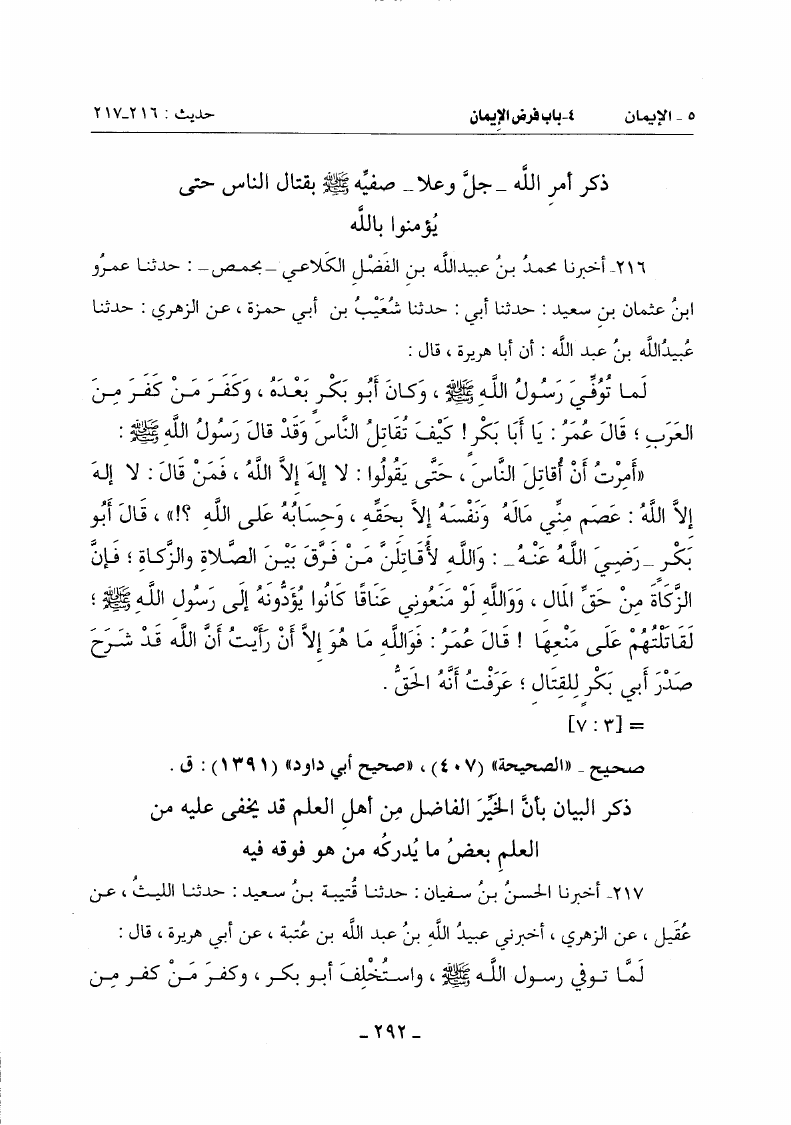 ٥ - الإيمان ٤-باب فرض الإيمان حديث : ٢١٦-٢١٧
ذكر أمرِ اللَّه - جلَّ وعلا - صفيِّه ﷺ بقتال الناس حتى
يُؤمنوا باللَّه
٢١٦- أخبرنا محمدُ بنُ عبيداللَّه بن الفَضْلِ الكَلَاعي -بحمص- : حدثنا عمرُو
ابنُ عثمان بنِ سعيد : حدثنا أبي : حدثنا شُعَيْبُ بن أبي حمزة ، عن الزهري : حدثنا
عُبيدُاللَّه بنُ عبد اللَّه : أن أبا هريرة ، قال :
لَما تُوُفِّيَ رَسُولُ اللَّهِ ﷺ ، وَكانَ أَبُو بَكْرٍ بَعْدَهُ ، وَكَفَرَ مَنْ كَفَرَ مِنَ
العَرَبِ ؛ قَالَ عُمَرُ : يَا أَبَا بَكْرٍ ! كَيْفَ تُقَاتِلُ النَّاسَ وَقَدْ قالَ رَسُولُ اللَّهِ ﷺ :
«أُمِرْتُ أَنْ أُقاتِلَ النَّاسَ ، حَتَّى يَقُولُوا : لا إلهَ إلاَّ اللَّهُ ، فَمَنْ قَالَ : لا إلهَ
إلاَّ اللَّهُ : عَصَمَ مِنِّي مَالَهُ وَنَفْسَهُ إلاَّ بِحَقِّهِ ، وَحِسَابُهُ عَلى اللَّهِ ؟!» ، قَالَ أَبُو
بَكْرٍ -رَضِيَ اللَّهُ عَنْهُ- : وَاللَّهِ لأُقَاتِلَنَّ مَنْ فَرَّقَ بَيْنَ الصَّلاةِ والزَّكاةِ ؛ فَإنَّ
الزَّكَاةَ مِنْ حَقِّ المَالِ ، وَوَاللَّهِ لَوْ مَنَعُوني عَنَاقًا كَانُوا يُؤَدُّونَهُ إلَى رَسُولِ اللَّهِ ﷺ ؛
لَقَاتَلْتُهُمْ عَلَى مَنْعِهَا ! قَالَ عُمَرُ : فَوَاللَّهِ مَا هُوَ إلاَّ أَنْ رَأَيْتُ أَنَّ اللَّهَ قَدْ شَرَحَ
صَدْرَ أَبي بَكْرٍ لِلقِتَالِ ؛ عَرَفْتُ أَنَّهُ الحَقُّ .
= [٣ : ٧]
صحيح - «الصحيحة» (٤٠٧) ، «صحيح أبي داود» (١٣٩١) : ق .
ذكر البيان بأنَّ الخَيِّرَ الفاضل مِن أهلِ العلم قد يخفى عليه من
العلمِ بعضُ ما يُدركُه من هو فوقه فيه
٢١٧- أخبرنا الحسنُ بنُ سفيان : حدثنا قُتيبة بنُ سعيد : حدثنا الليثُ ، عن
عُقَيل ، عن الزهري ، أخبرني عبيدُ اللَّه بنُ عبد اللَّه بن عُتبة ، عن أبي هريرة ، قال :
لَمَّا توفي رسول اللَّه ﷺ ، واستُخْلِفَ أبو بكر ، وكفرَ مَنْ كفر من
- ٢٩٢ -